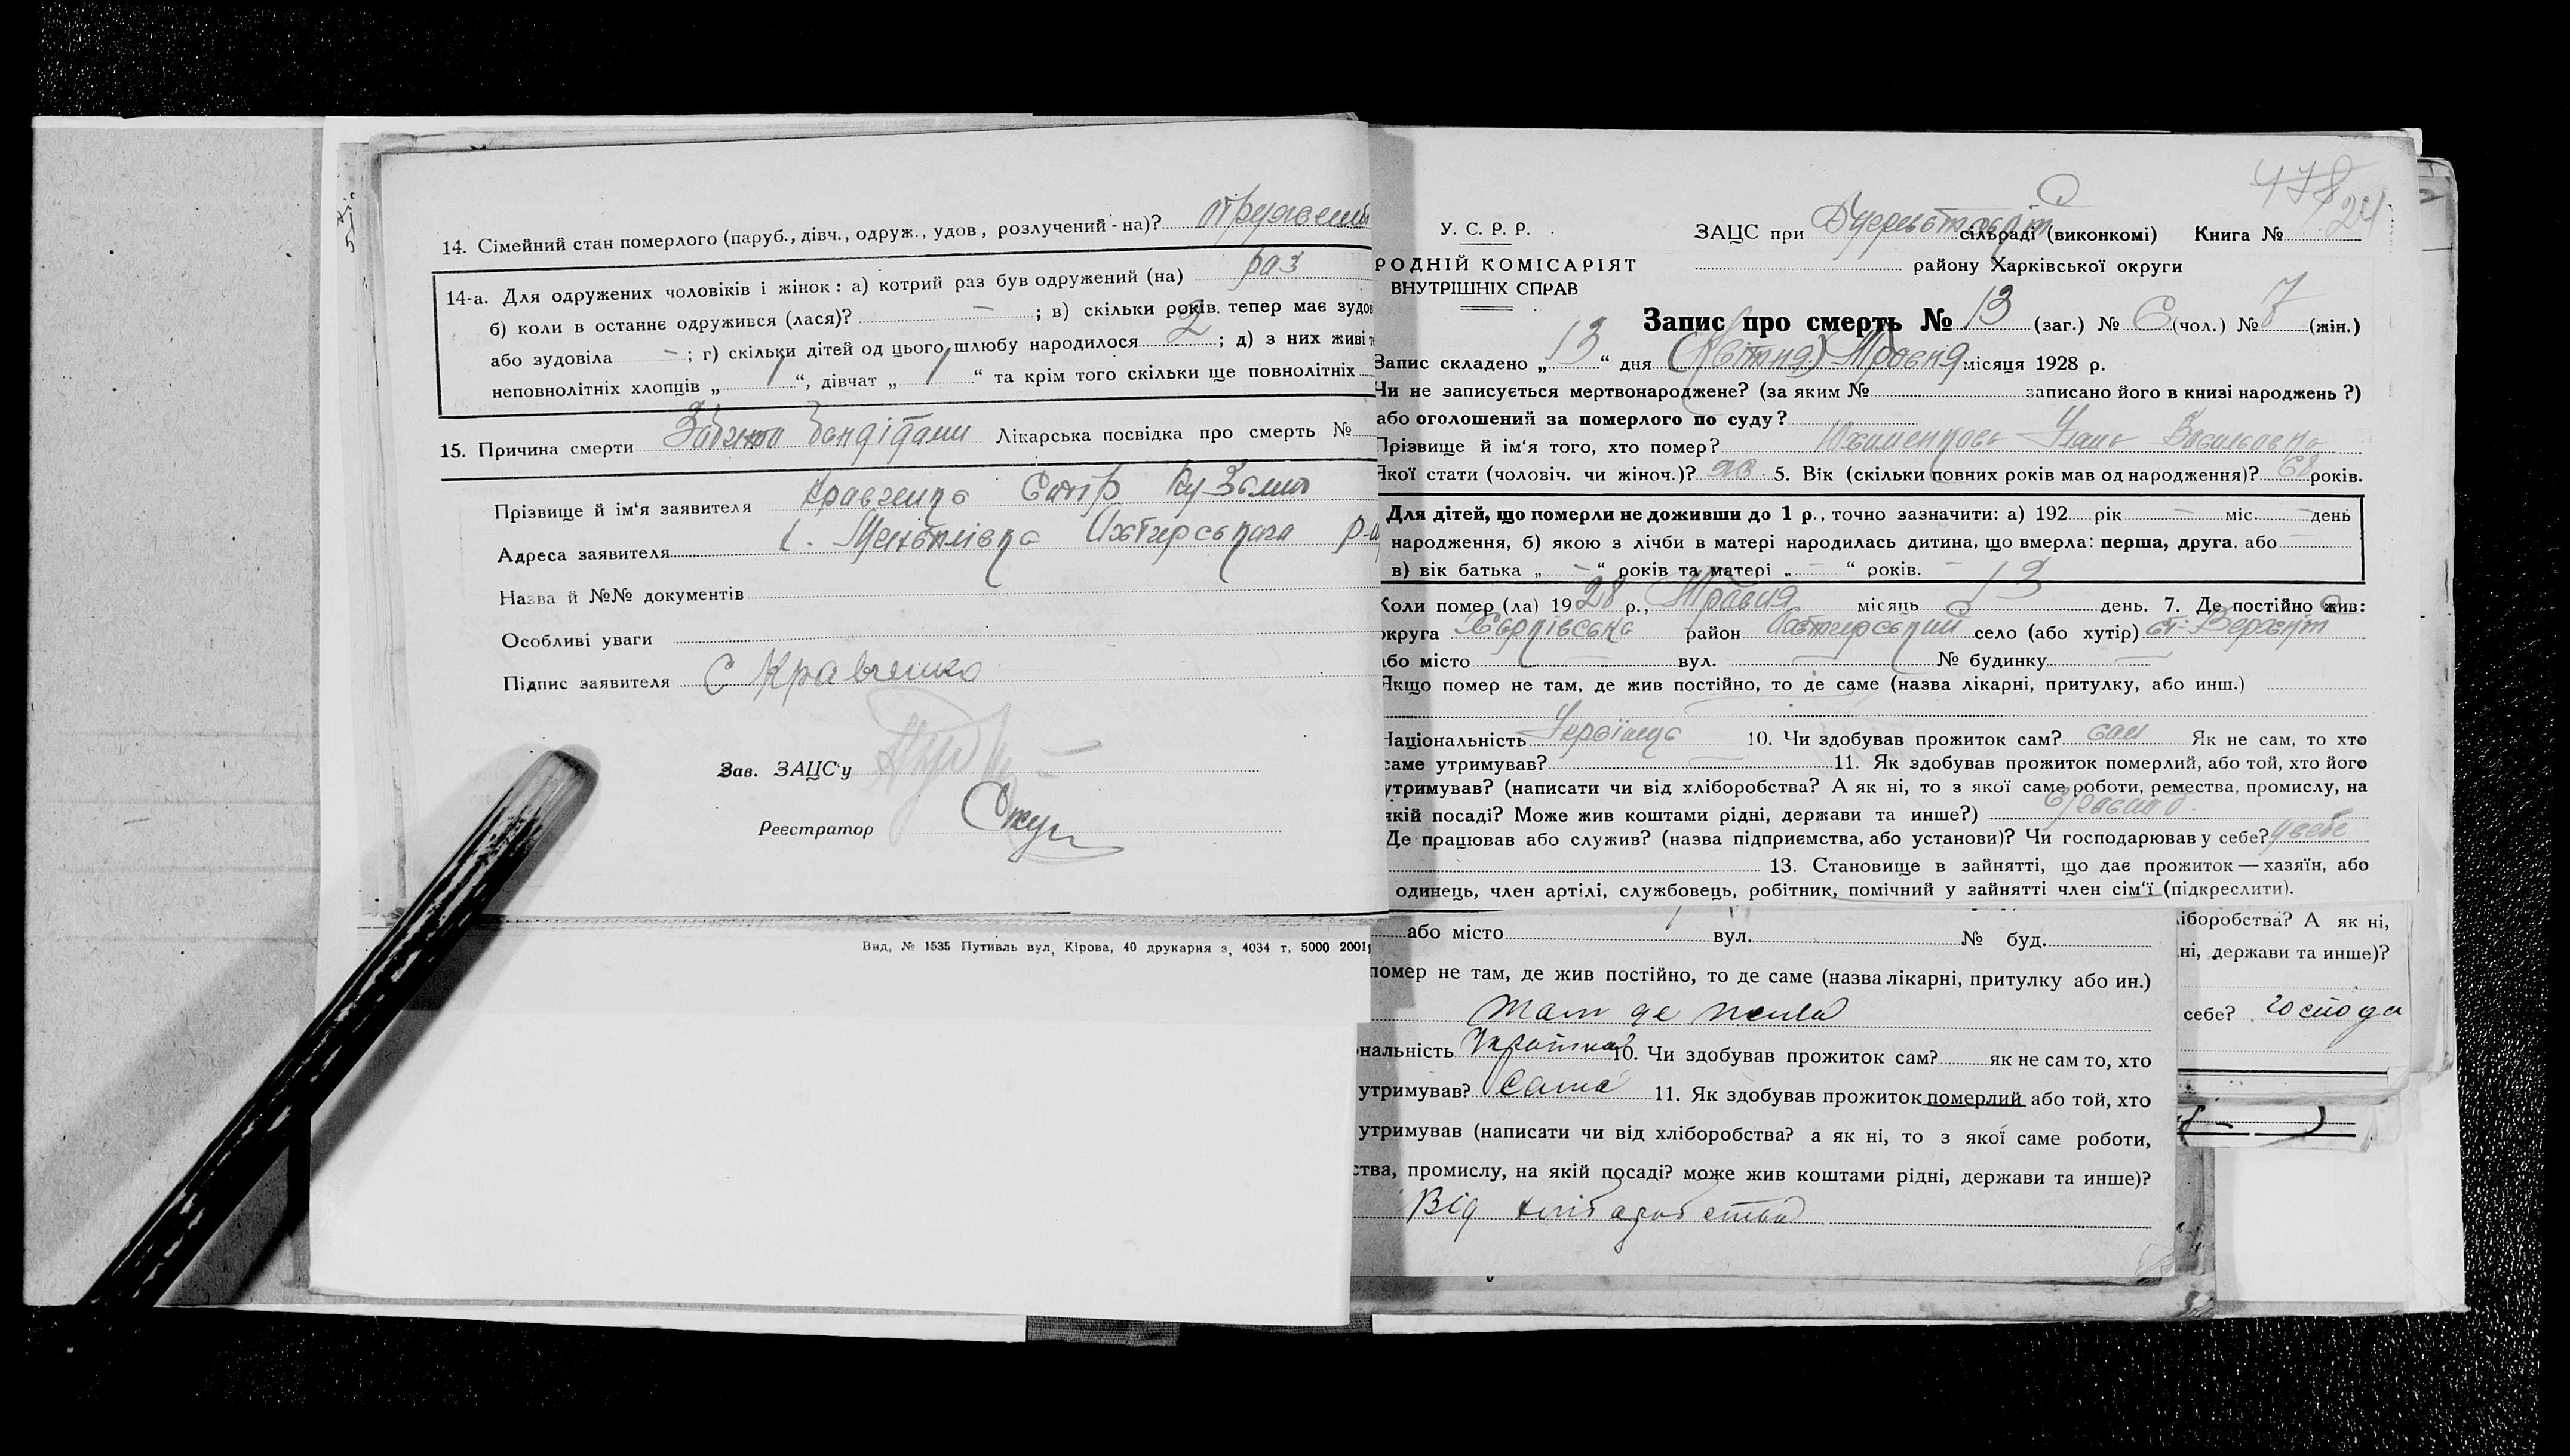 14. Сімейний стан померлого (паруб., дівч., одруж., удов, розлучений-на)?
14-а. Для одружених чоловіків і жінок: а) котрий раз був одружений (на) раз
б) коли в останнє одружився (лася)? — ; в) скільки років тепер має зудов
або зудовіла — ; г) скільки дітей од цього шлюбу народилося 2 ; д) з них живі
неповнолітніх хлопців „ 1 “, дівчат „ 1 “ та крім того скільки ще повнолітніх
15. Причина смерти бандітами Лікарська посвідка про смерть №
Прізвище й ім'я заявителя Кравченко
Адреса заявителя с.
Назва й №№ документів
Особливі уваги
Підпис заявителя С Кравченко
Зав. ЗАЦС'у
Реєстратор
Вид, № 1535 Путивль вул, Кірова, 40 друкарня з, 4034 т, 5000 2001
478
24
У. С. Р. Р.
РОДНІЙ КОМІСАРІЯТ
ВНУТРІШНІХ СПРАВ
ЗАЦС при сільраді (виконкомі) Книга №
району Харківської округи
Запис про смерть № 13 (заг.) № 6 (чол.) № 7 (жін.)
Запис складено „ 13 “ дня (Квітня) Травня місяця 1928 р.
Чи не записується мертвонароджене? (за яким № записано його в книзі народжень ?)
або оголошений за померлого по суду?
Прізвище й ім'я того, хто помер?
Якої стати (чоловіч. чи жіноч.)? 5. Вік (скільки повних років мав од народження)? 68 років.
Для дітей, що померли не доживши до 1 р., точно зазначити: а) 192 рік — міс. — день
народження, б) якою з лічби в матері народилась дитина, що вмерла: перша, друга, або —
в) вік батька „ — “ років та матері „ — “ років. —
Коли помер (ла) 1928 р., Травня місяць 13 день. 7. Де постійно жив:
округа Харківська район Охтирський село (або хутір)
або місто — вул. — № будинку —
Якщо помер не там, де жив постійно, то де саме (назва лікарні, притулку, або инш.)
Національність 10. Чи здобував прожиток сам? сам Як не сам, то хто
саме утримував? — 11. Як здобував прожиток померлий, або той, хто його
утримував? (написати чи від хліборобства? А як ні, то з якої саме роботи, ремества, промислу, на
якій посаді? Може жив коштами рідні, держави та инше?)
Де працював або служив? (назва підприємства, або установи)? Чи господарював у себе? у себе
13. Становище в зайнятті, що дає прожиток — хазяїн, або
одинець, член артілі, службовець, робітник, помічний у зайнятті член сім'ї (підкреслити).
або місто вул. № буд.
помер не там, де жив постійно, то де саме (назва лікарні, притулку або ин.)
там де жила
нальність Українка 10. Чи здобував прожиток сам? як не сам то, хто
утримував? сама 11. Як здобував прожиток померлий або той, хто
утримував (написати чи від хліборобства? а як ні, то з якої саме роботи,
ства, промислу, на якій посаді? може жив коштами рідні, держави та инше)?
Від хліборобства
іборобства? А як ні,
ні, держави та инше)?
себе? господа